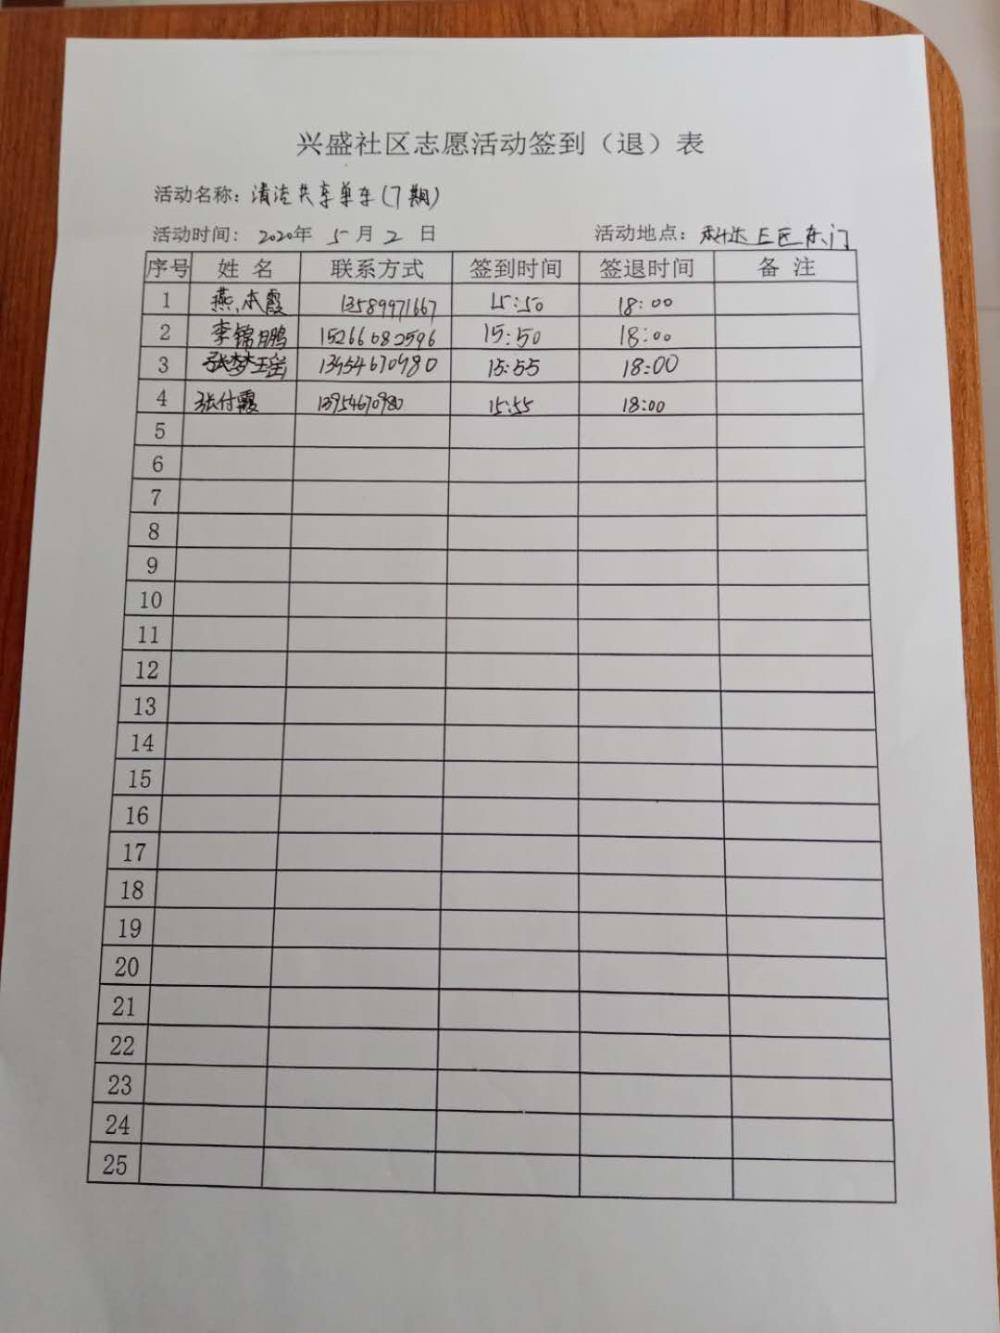 兴盛社区志愿活动签到（退）表
活动名称：清洁共享单车(7期)
活动时间：2020年 5月 2 日 活动地点：科达E区东门
序号 姓 名 联系方式 签到时间 签退时间 备 注
1 燕本霞 13589971667 15:50 18:00
2 李锦鹏 15266082596 15:50 18:00
3 张梦瑶 13954670980 15:55 18:00
4 张付霞 13954670980 15:55 18:00
5
6
7
8
9
10
11
12
13
14
15
16
17
18
19
20
21
22
23
24
25